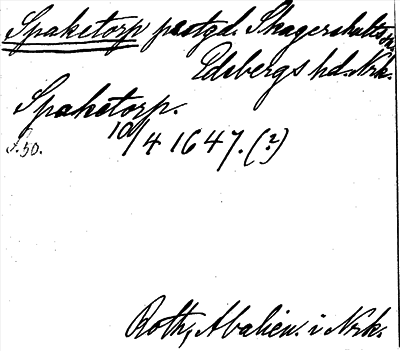 Spaketorp prstgd. Skagershults sn.
Edsbergs hd. Nrk.
Spaketorp.
S. 50.
10/4 1647. (?)
Roth, Abalien. i Nrk.